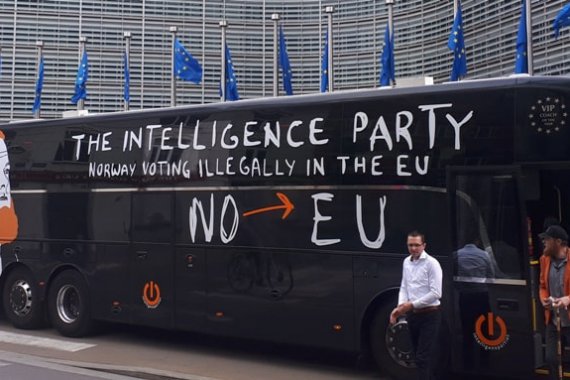 THE INTELLIGENCE PARTY
NORWAY VOTING ILLEGALLY IN THE EU
NO → EU
VIP
COACH